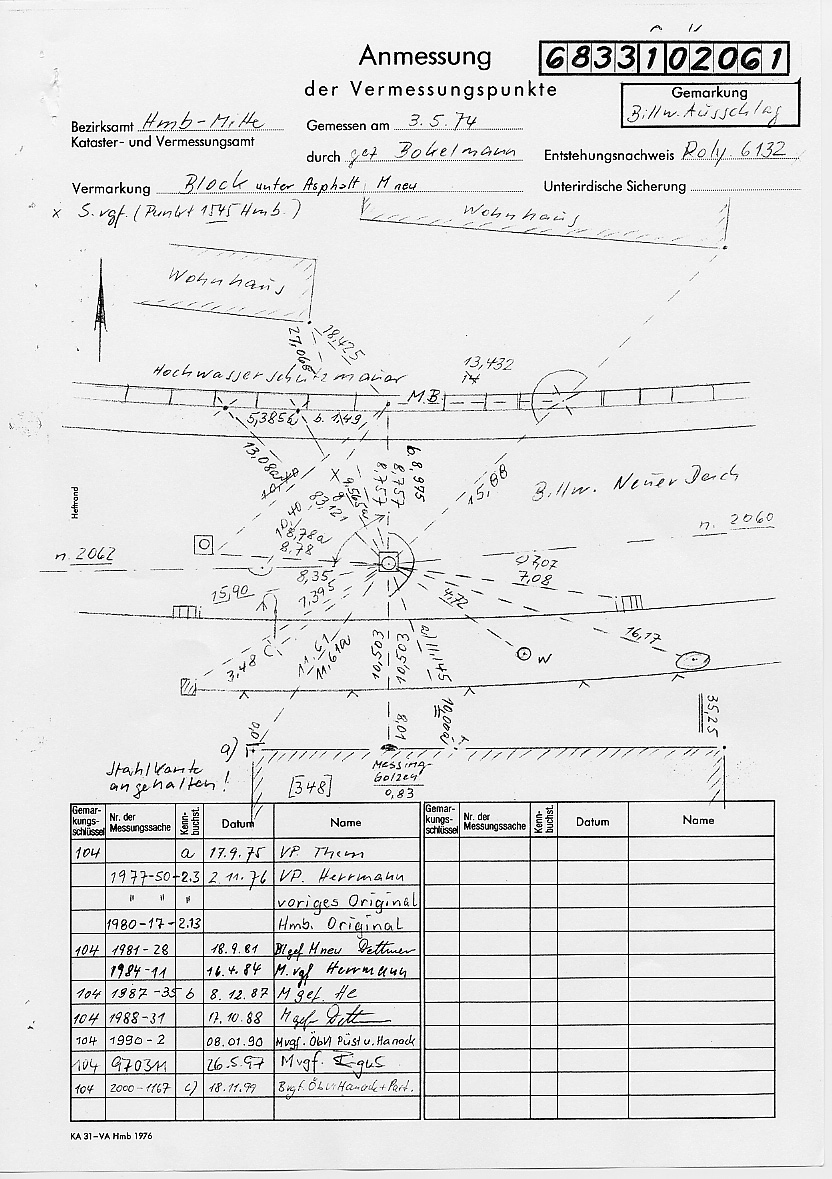 Anmessung
6833102061
der Vermessungspunkte
Gemarkung
Billw. Ausschlag
Bezirksamt Hmb-Mitte
Gemessen am 3.5.74
Kataster- und Vermessungsamt
durch gez Bokelmann
Entstehungsnachweis Poly 6132
Vermarkung Block unter Asphalt, M neu
Unterirdische Sicherung
x S. vgf. (Punkt 1545 Hmb.)
Wohnhaus
Wohnhaus
27,068
18,425
Hochwasserschutzmauer
13,432
M.B.
5,385a
b. 1,49
13,08a
b 8,975
8,757
8,757
15,88
Billw. Neuer Deich
Heftrand
10,40
8,78a
8,78
n. 2062
n. 2060
8,35
7,395
7,07
7,08
15,90
4,72
16,17
3,48
11,61
11,61a
10,503
10,503
a) 11,145
W
10,00a
8,01
35,25
0,0
a)
Messing-
bolzen
0,83
Stahlkante
angehalten!
[348]
Gemar-
kungs-
schlüssel
Nr. der
Messungssache
Kenn-
buchst.
Datum
Name
Gemar-
kungs-
schlüssel
Nr. der
Messungssache
Kenn-
buchst.
Datum
Name
104 a 17.9.75 VP. Them
1977-50-2.3 2.11.76 VP. Herrmann
" " " voriges Original
1980-17-2.13 Hmb. Original
104 1981-28 18.9.81 Blgef Mneu Dettmer
1984-11 16.4.84 M. vgf Herrmann
104 1987-35 b 8.12.87 M gef. He
104 1988-31 17.10.88 M gef. Dett
104 1990-2 08.01.90 Mvgf. ÖbVI Püst u. Hanack
104 970311 26.5.97 Mvgf.
104 2000-1167 c) 18.11.99 Bvgf. ÖbVI Hanack + Part.
KA 31-VA Hmb 1976